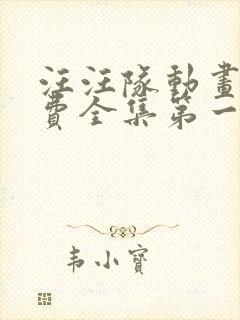 汪汪隊動畫
費全集第一
韦小寶